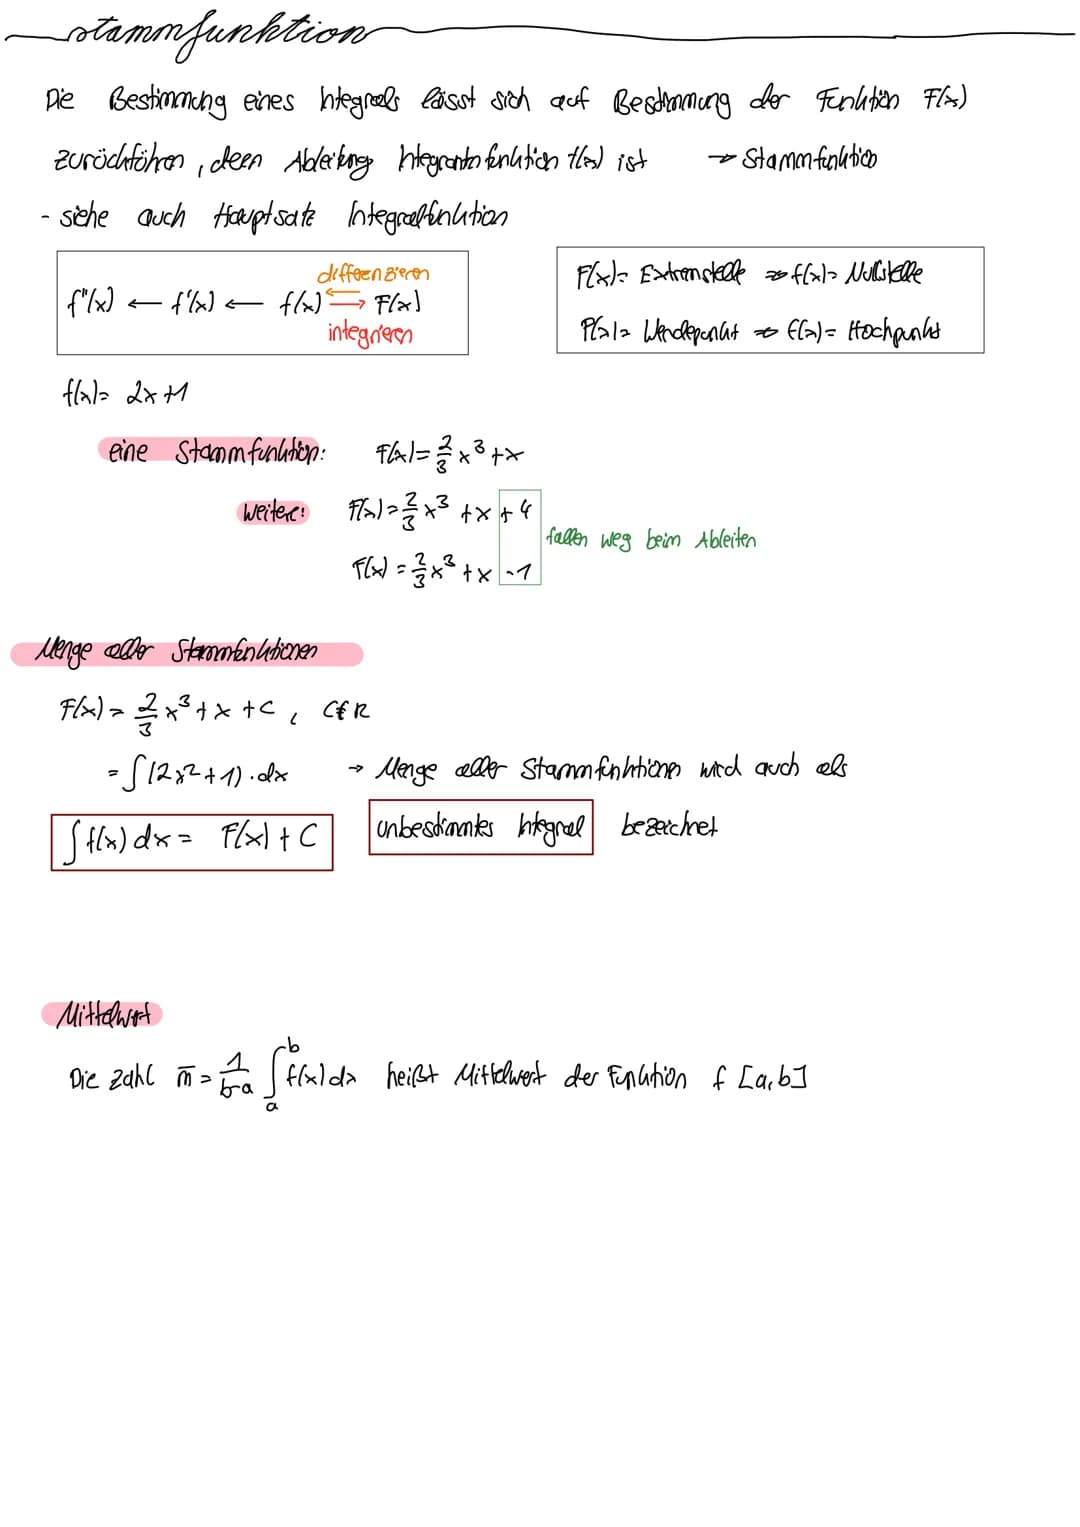 stammfunktion
Die Bestimmung eines Integrals lässt sich auf Bestimmung der Funktion F(x)
zurückführen, deen Ableitung Integranten funktion f(x) ist → Stammfunktion
- siehe auch Hauptsatz Integralfunktion
differenzieren
f''(x) ← f'(x) ← f(x) ⇄ F(x)
integrieren
F(x) = Extremstelle ⇒ f(x) = Nullstelle
F(x) = Wendepunkt ⇒ f(x) = Hochpunkt
f(x) = 2x+1
eine Stammfunktion: F(x) = 2/3 x³ + x
weitere: F(x) = 2/3 x³ + x + 4
fallen weg beim Ableiten
F(x) = 2/3 x³ + x - 1
Menge aller Stammfunktionen
F(x) = 2/3 x³ + x + C, C∈R
= ∫(2x²+1)·dx → Menge aller Stammfunktionen wird auch als
∫f(x) dx = F(x) + C unbestimmtes Integral bezeichnet
Mittelwert
Die Zahl m̄ = 1/(b-a) ∫ₐᵇ f(x) dx heißt Mittelwert der Funktion f [a,b]